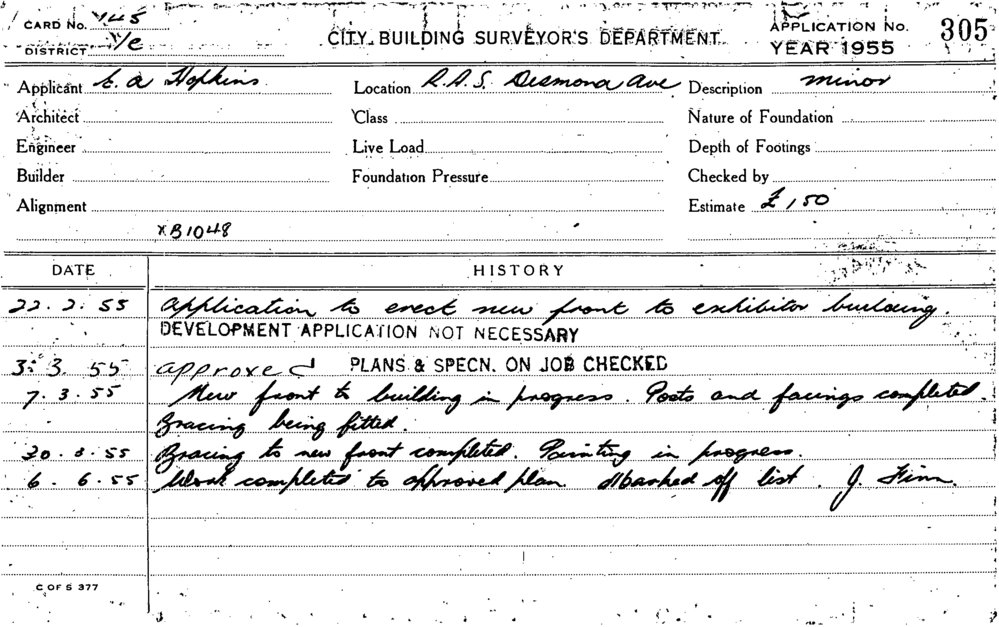 CARD No. 445
DISTRICT Y/c
CITY BUILDING SURVEYOR'S DEPARTMENT
APPLICATION No. 305
YEAR 1955
Applicant E. A Hopkins Location R.A.S. Desmond Ave Description minor
Architect Class Nature of Foundation
Engineer Live Load Depth of Footings
Builder Foundation Pressure Checked by
Alignment Estimate £150
XB1048
DATE HISTORY
22.2.55 Application to erect new front to exhibitor building.
DEVELOPMENT APPLICATION NOT NECESSARY
3. 3. 55 approved PLANS & SPECN. ON JOB CHECKED
7. 3. 55 New front to building in progress. Posts and facings completed.
Bracing being fitted.
30.3.55 Bracing to new front completed. Painting in progress.
6. 6.55 Work completed to approved plan. Marked off list. J. Finn.
C OF S 377